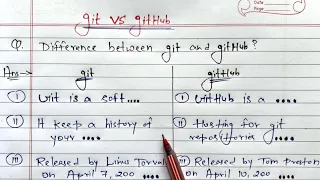 Date
Page
git vs gitHub
Q. Difference between git and gitHub?
Ans→ git gitHub
① Git is a soft.... ① GitHub is a ....
② It keep a history of ② Hosting for git
your .... repositories ....
③ Released by Linus Torval ③ Released by Tom Preston
on April 7, 200 .... on April 10, 200 ....